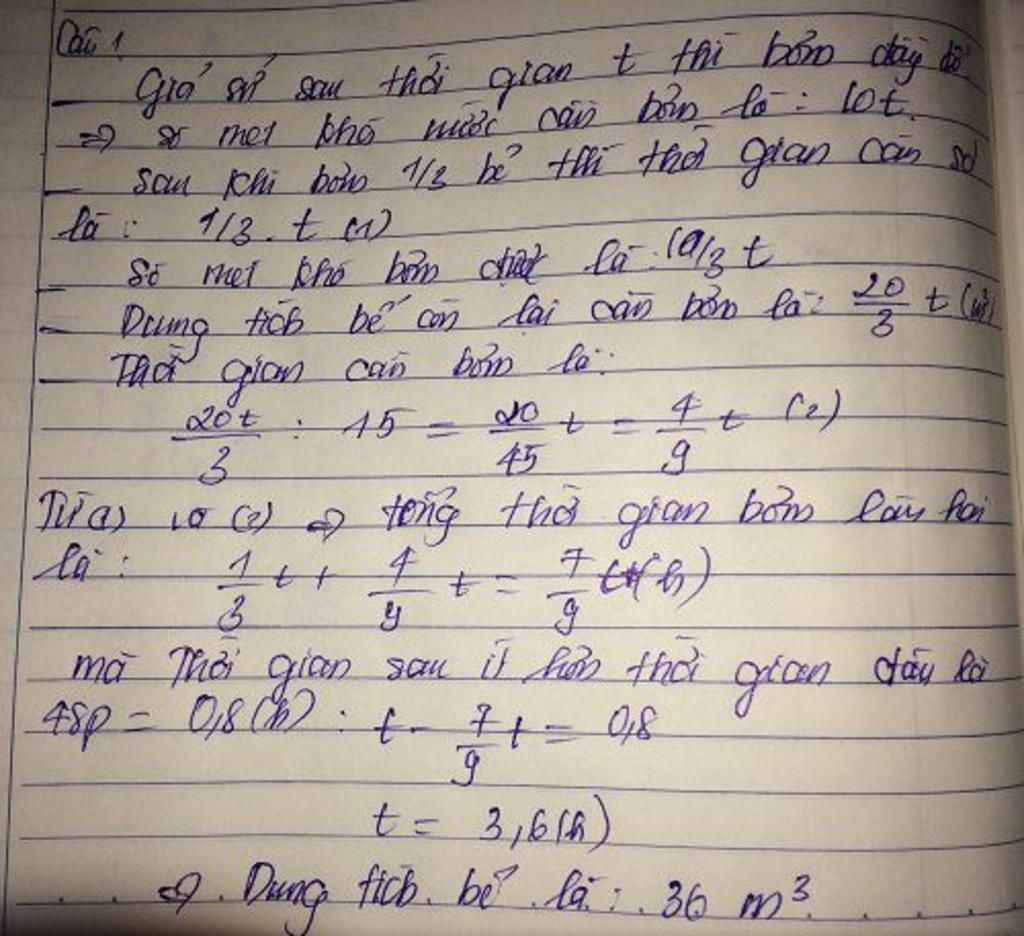 Câu 1
Giả sử sau thời gian t thì bơm đầy bể
=> số mét khối nước cần bơm là: 10t.
- sau khi bơm 1/3 bể thì thời gian cần sd
là: 1/3. t (1)
- Số mét khối bơm được là: 10/3 t
- Dung tích bể còn lại cần bơm là: 20/3 t (m³)
- Thời gian cần bơm là:
20t/3 : 15 = 20/45 t = 4/9 t (2)
Từ (1) và (2) => tổng thời gian bơm lần hai
là: 1/3 t + 4/9 t = 7/9 t (h)
mà Thời gian sau ít hơn thời gian đầu là
48p = 0,8(h): t - 7/9 t = 0,8
t = 3,6(h)
=> Dung tích bể là: 36 m³.